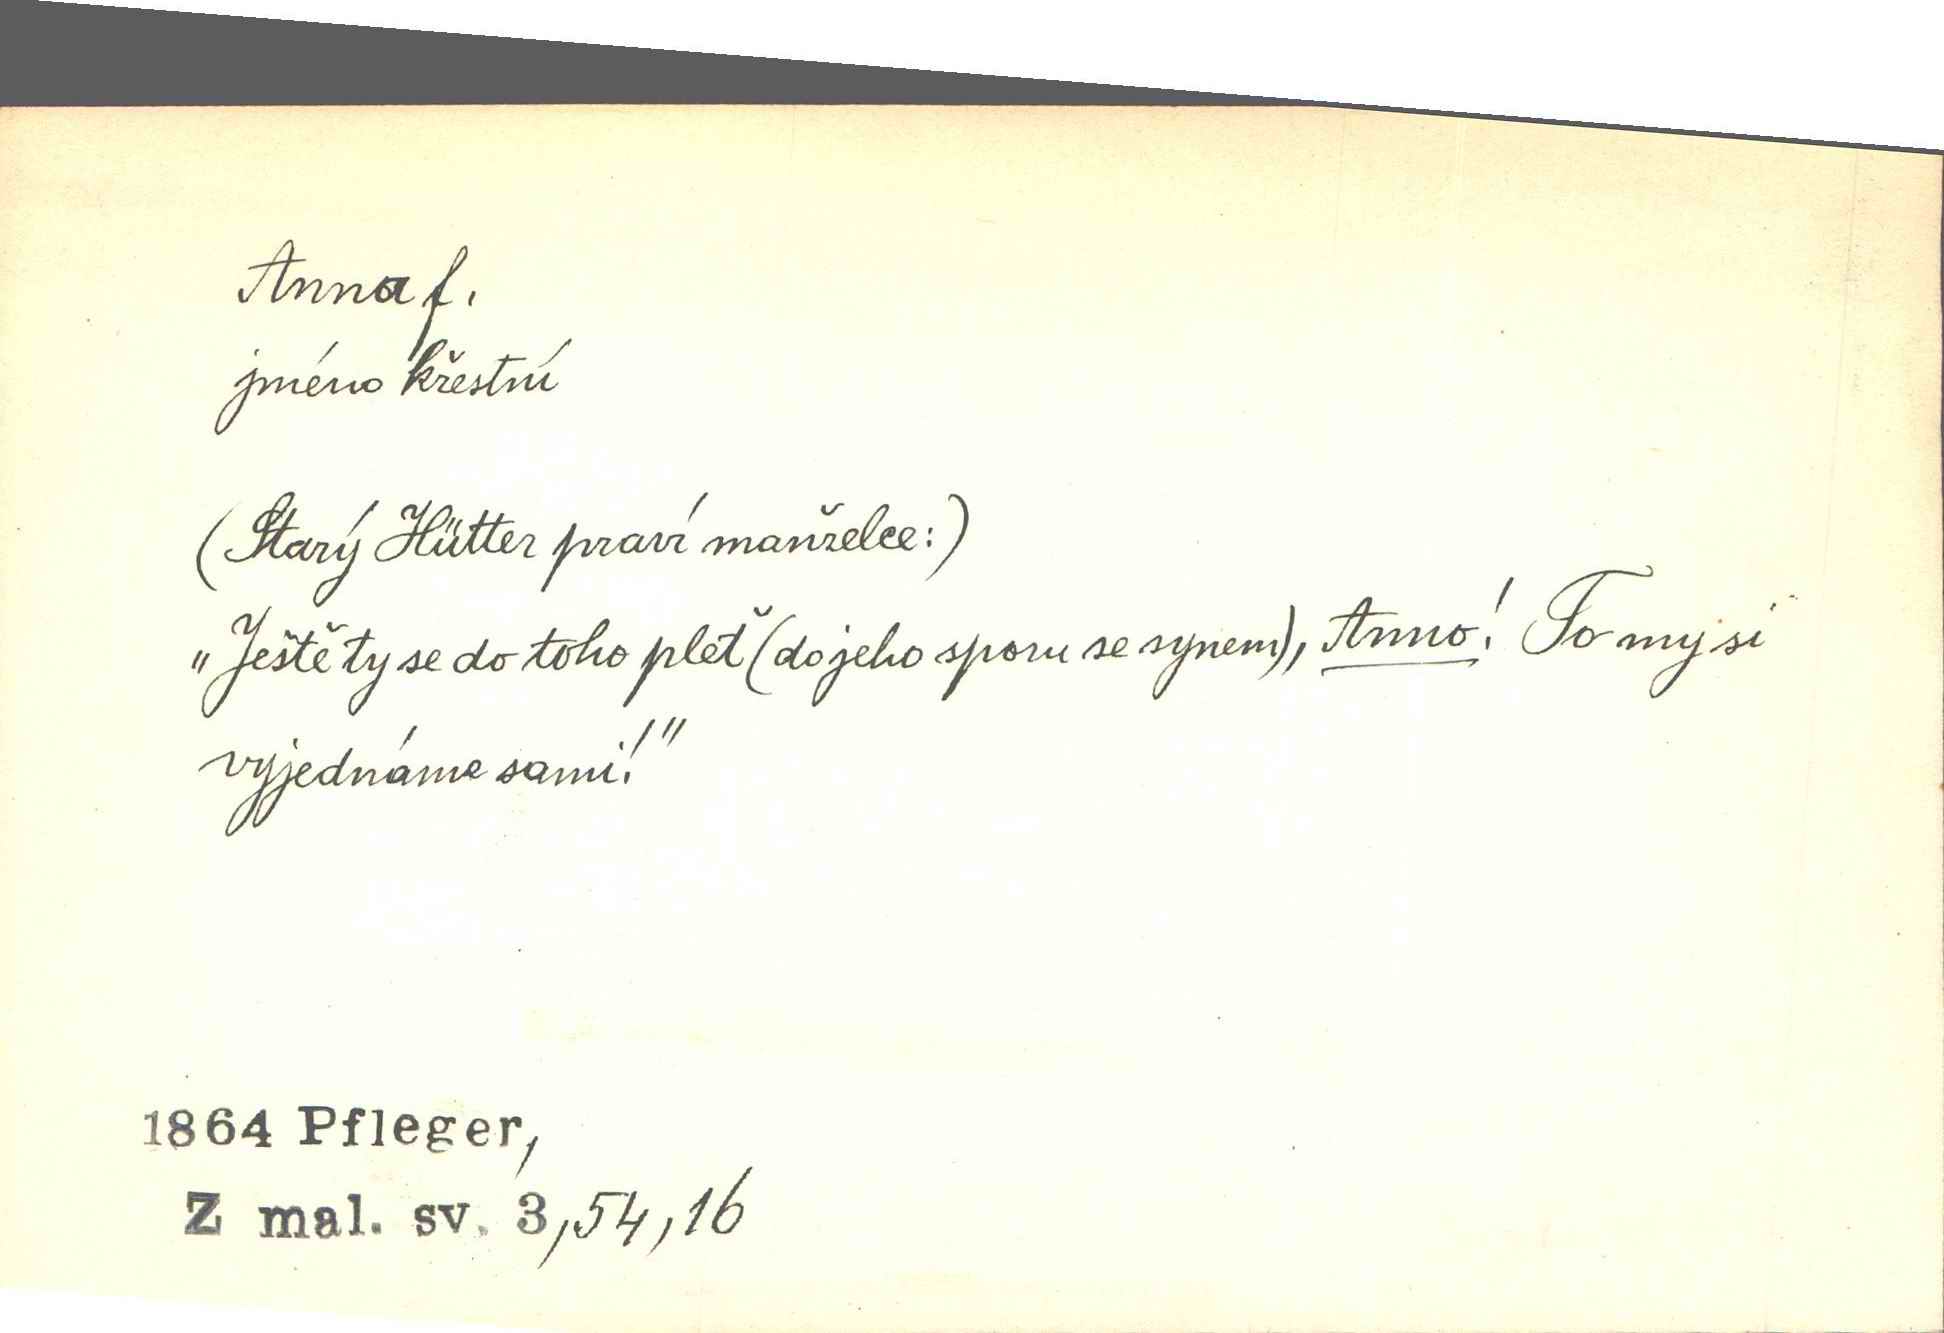 Anna f.
jméno křestní
(Starý Hütter praví manželce:)
„Ještě ty se do toho pleť (do jeho sporu se synem), Anno! To my si
vyjednáme sami!"
1864 Pfleger,
Z mal. sv. 3,54,16